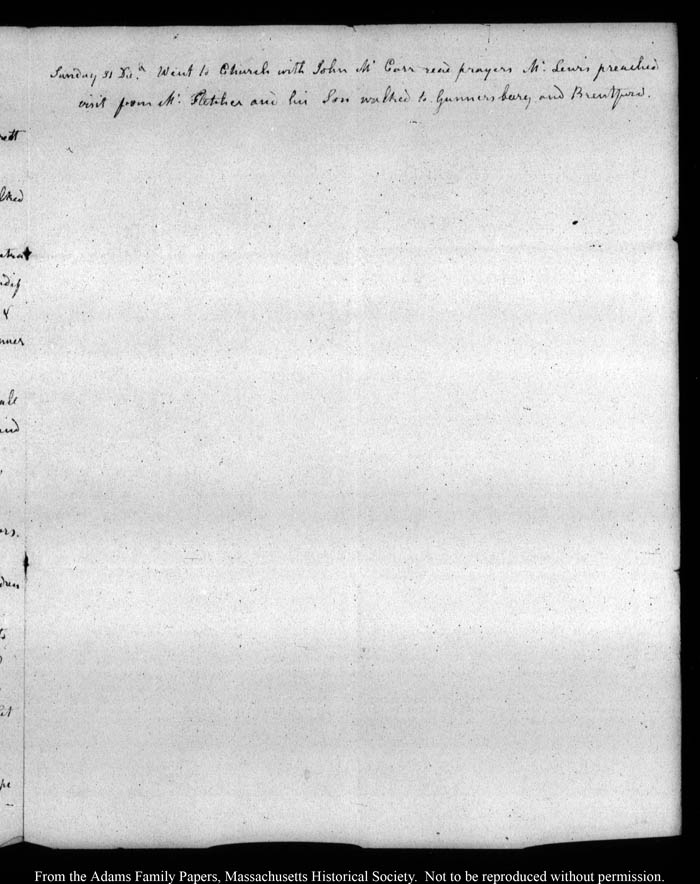 Sunday 31 Went to Church with John Mr Carr read prayers Mr. Lewis preached
visit from Mr. Fletcher and his Son walked to Gunnersbury and Brentford.
From the Adams Family Papers, Massachusetts Historical Society. Not to be reproduced without permission.